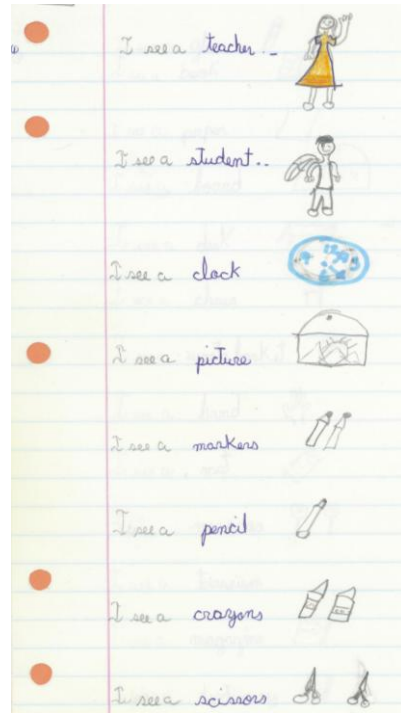 I see a teacher..
I see a student..
I see a clock
I see a picture
I see a markers
I see a pencil
I see a crayons
I see a scissors